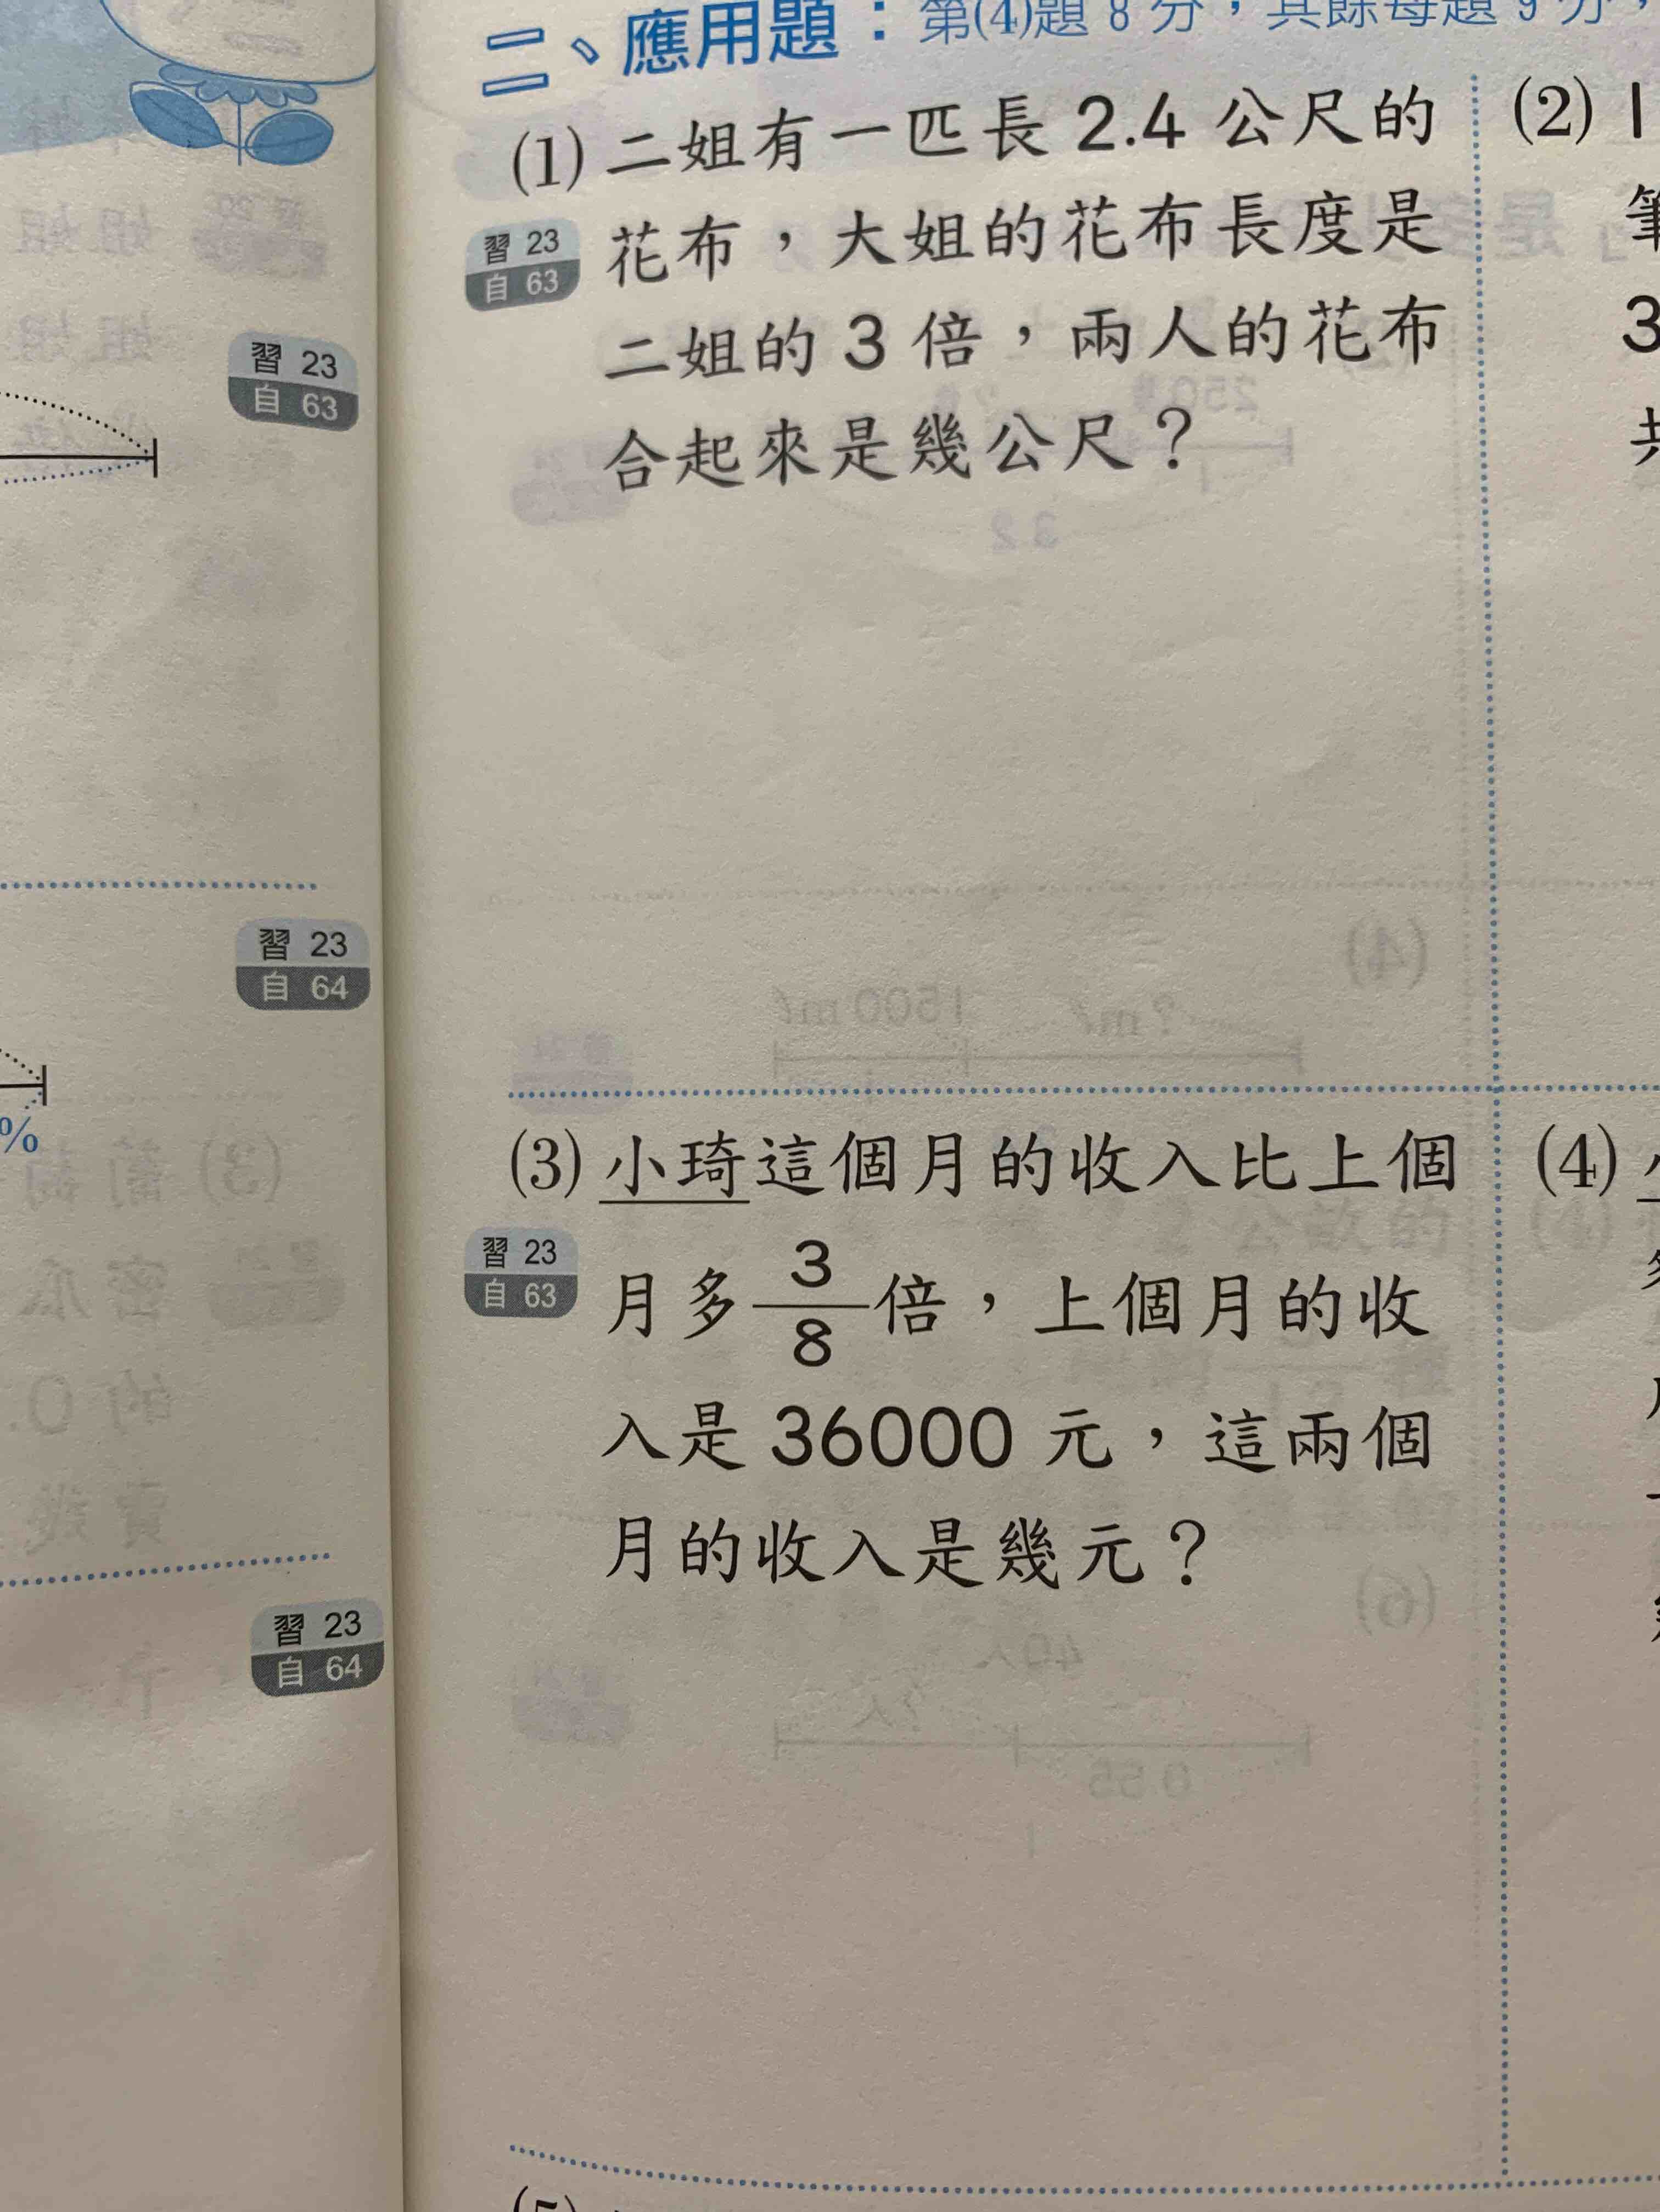 習 23
自 63
習 23
自 64
%
習 23
自 64
二、應用題：第(4)題 8 分，其餘每題 9 分，
(1) 二姐有一匹長 2.4 公尺的
習 23
自 63
花布，大姐的花布長度是
二姐的 3 倍，兩人的花布
合起來是幾公尺？
(2) 1
筆
3
共
(3) 小琦這個月的收入比上個
習 23
自 63
月多 3/8 倍，上個月的收
入是 36000 元，這兩個
月的收入是幾元？
(4)
(5)